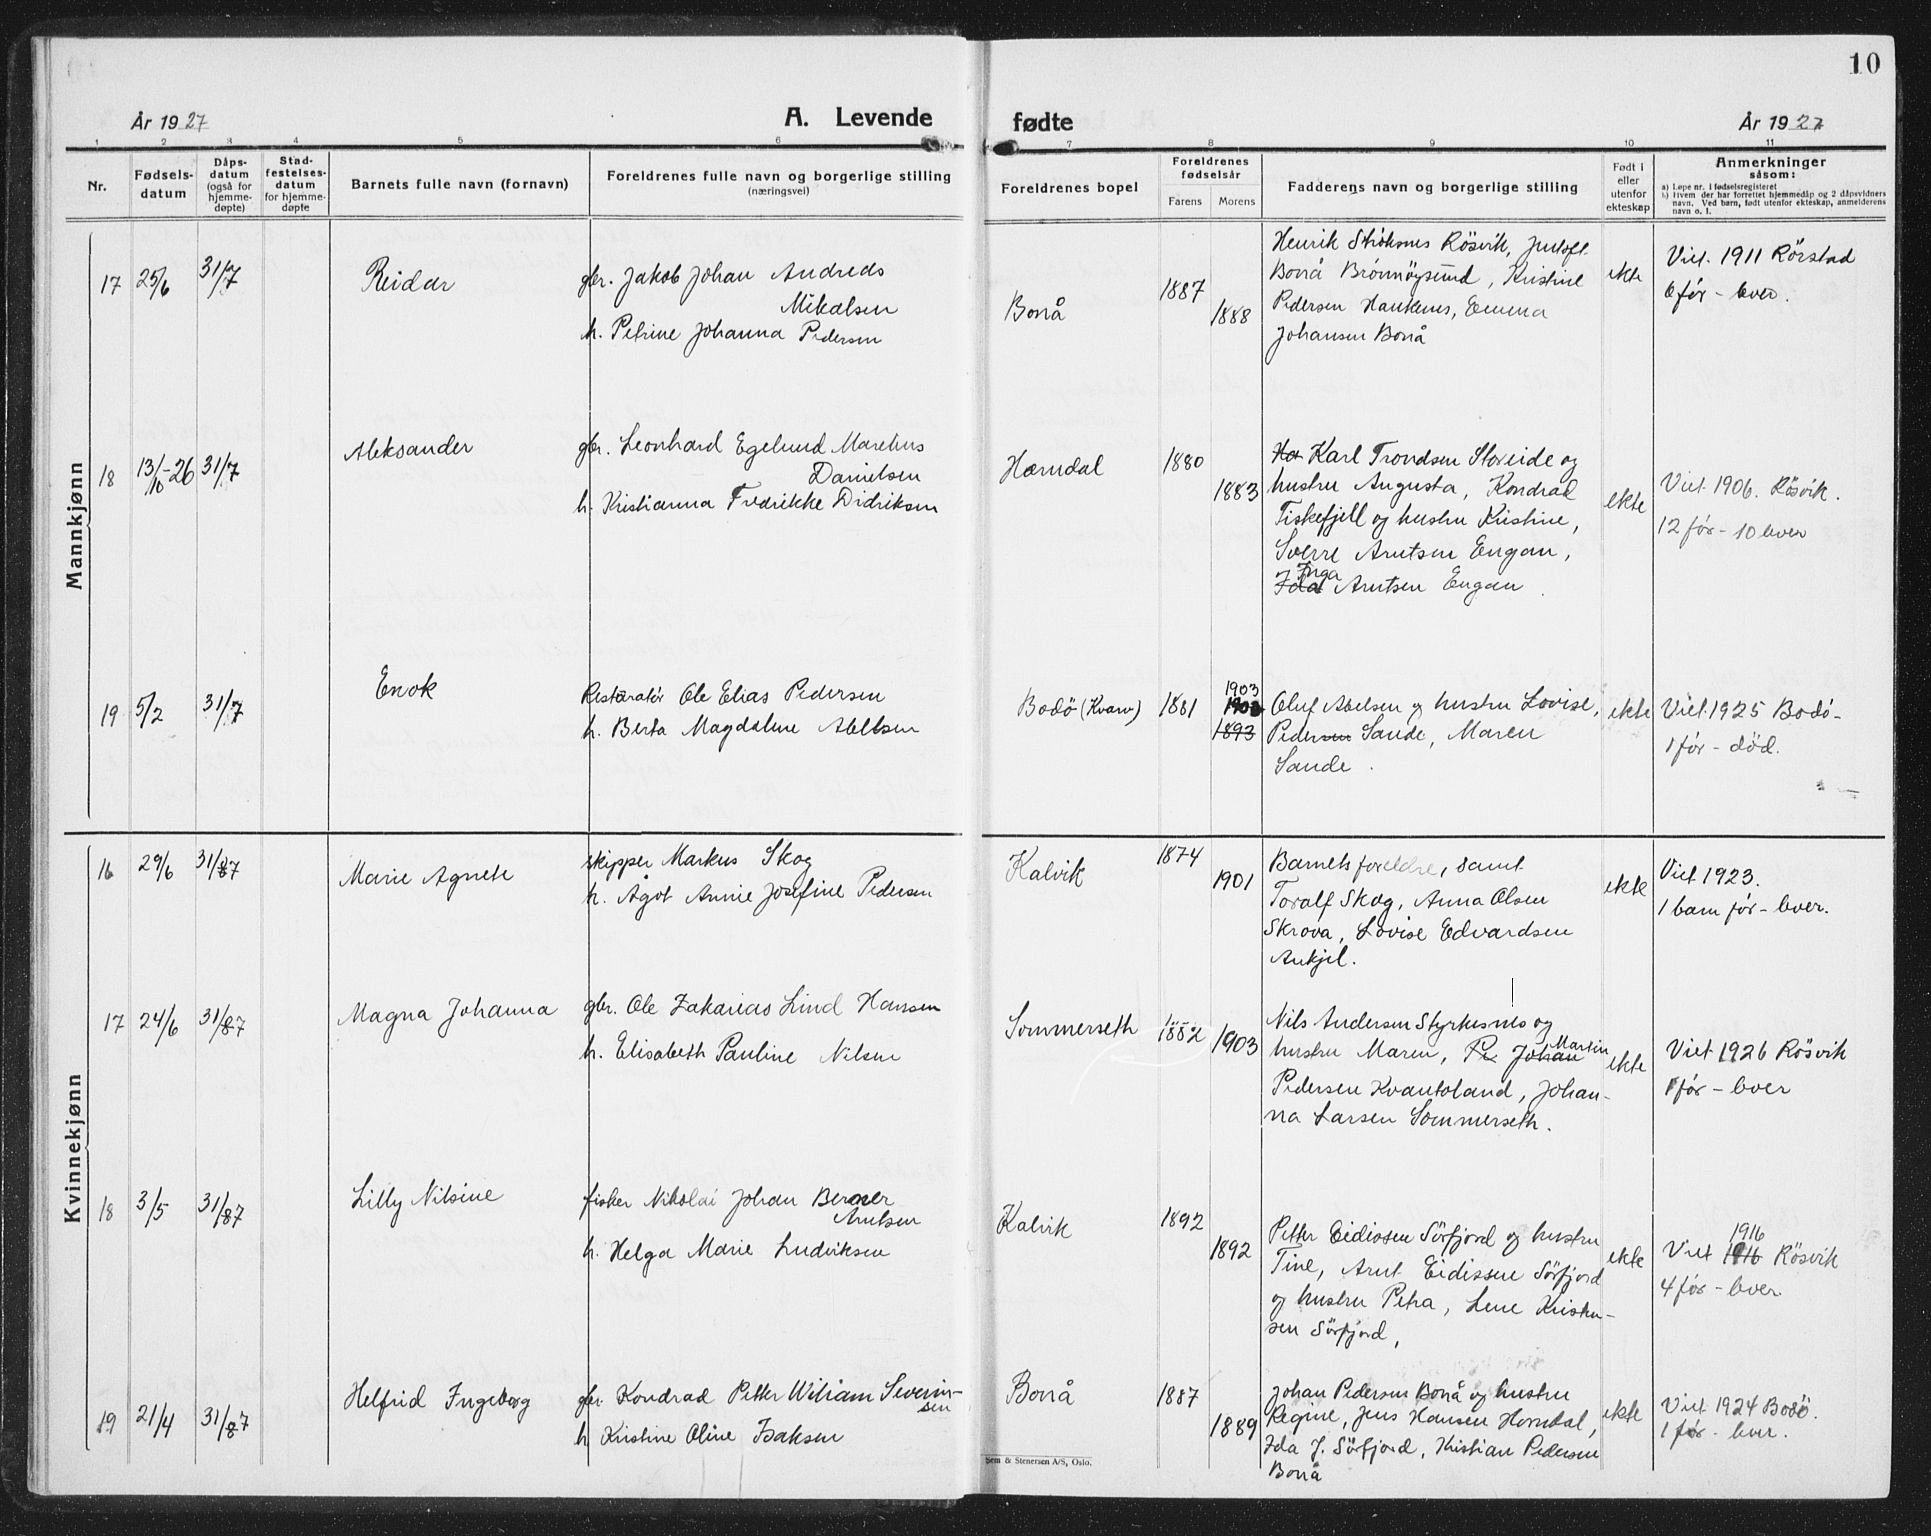 10
År 1927
A. Levende
fødte
År 1927
1 2 3 4 5 6 7 8 9 10 11
Nr.
Fødsels-
datum
Dåps-
datum
(også for
hjemme-
døpte)
Stad-
festelses-
datum
for hjemme-
døpte
Barnets fulle navn (fornavn)
Foreldrenes fulle navn og borgerlige stilling
(næringsvei)
Foreldrenes bopel
Foreldrenes
fødselsår
Farens Morens
Fadderens navn og borgerlige stilling
Født i
eller
utenfor
ekteskap
Anmerkninger
såsom:
a) Løpe nr. i fødselsregisteret
b) Hvem der har forrettet hjemmedåp og 2 dåpsvidners
navn. Ved barn, født utenfor ekteskap, anmelderens
navn o. l.
Mannkjønn
17 25/6 31/7
Reidar
gbr. Jakob Johan Andreas
Mikalsen
h. Petrine Johanna Pedersen
Bonå
1887
1888
Henrik Strøksnes Rösvik,
Bonå Brönnöysund, Kristine
Pedersen Haukenes, Emma
Johansen Bonå
ekte
Viet. 1911 Rörstad
6 før - lever.
18 13/10-26 31/7
Aleksander
gbr. Leonhard Egelund Marelius
Danielsen
h. Kristianna Fredrikke Didriksen
Horndal
1880
1883
Ha Karl Trondsen Storeide og
hustru Augusta, Kondrad
Fiskefjell og hustru Kristine,
Sverre Arntsen Engan,
Inga
Ida Arntsen Engan
ekte
Viet 1906. Rösvik.
12 før - 10 lever
19 5/2 31/7
Enok
Restaratör Ole Elias Pedersen
h. Berta Magdalene Abelsen
Bodö (Kvarv)
1881
1903
1903
1893
Oluf Abelsen og hustru Lovise,
Pedersen Sande, Maren
Sande.
ekte
Viet 1925 Bodö-
1 før - död.
Kvinnekjønn
16 29/6 31/87
Marie Agnete
skipper Markus Skog
h. Ågot Annie Josefine Pedersen
Kalvik
1874
1901
Barnets foreldre, samt
Toralf Skog, Anna Olsen
Skrova, Lovise Edvardsen
Ankjel.
ekte
Viet 1923.
1 barn før - lever.
17 24/6 31/87
Magna Johanna
gbr. Ole Zakarias Lind Hansen
h. Elisabeth Pauline Nilsen
Sommerseth
1882
1903
Nils Andersen Styrkesnes og
hustru Maren, Per Johan Martin
Pedersen Kvantoland, Johan-
na Larsen Sommerseth.
ekte
Viet 1926 Rösvik
1 før - lever
18 3/5 31/87
Lilly Nilsine
fisker Nikolai Johan Berner
Arntsen
h. Helga Marie Ludviksen
Kalvik
1892
1892
Petter Eidissen Sörfjord og hustru
Tine, Arnt Eidissen Sörfjord
og hustru Petra, Lene Kristen-
sen Sörfjord,
ekte
1916
Viet 1916 Rösvik
4 før - lever
19 21/4 31/87
Helfrid Ingeborg
gbr. Kondrad Petter Wiliam Severin-
sen
h Kristine Oline Isaksen
Bonå
1887
1889
Johan Pedersen Bonå og hustru
Regine, Jens Hansen Horndal,
Ida J. Sörfjord, Kristian Pedersen
Bonå
ekte
Viet 1924 Bodö.
1 før - lever.
Sem & Stenersen A/S, Oslo.